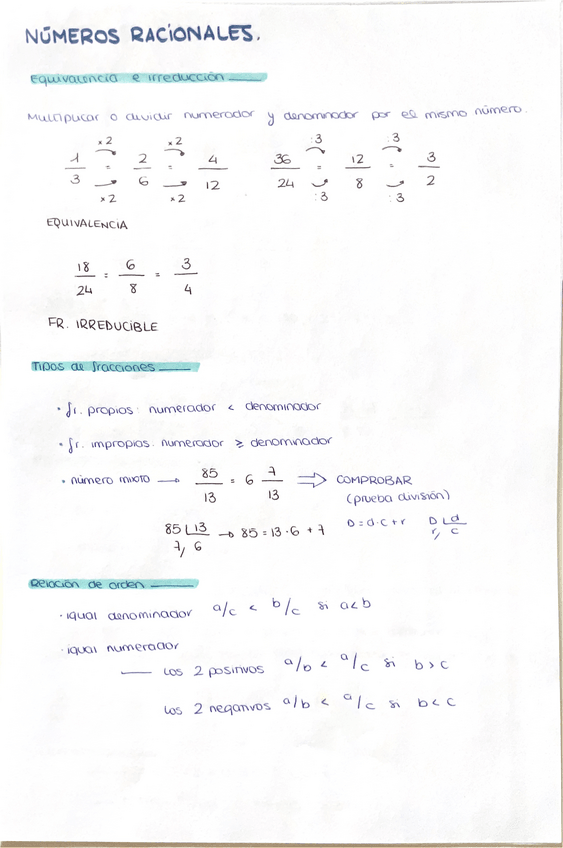 NÚMEROS RACIONALES.
Equivalencia e irreducción
Multiplicar o dividir numerador y denominador por el mismo número.
×2 ×2 :3 :3
1/3 = 2/6 = 4/12 36/24 = 12/8 = 3/2
×2 ×2 :3 :3
EQUIVALENCIA
18/24 = 6/8 = 3/4
FR. IRREDUCIBLE
Tipos de fracciones
· fr. propios: numerador < denominador
· fr. impropios: numerador ≥ denominador
· número mixto → 85/13 = 6 7/13 ⇒ COMPROBAR
(prueba división)
85 | 13 → 85 = 13·6 + 7 D = d·c + r D | d
7, 6 r, c
Relación de orden
· igual denominador a/c < b/c si a<b
· igual numerador
— Los 2 positivos a/b < a/c si b > c
Los 2 negativos a/b < a/c si b < c